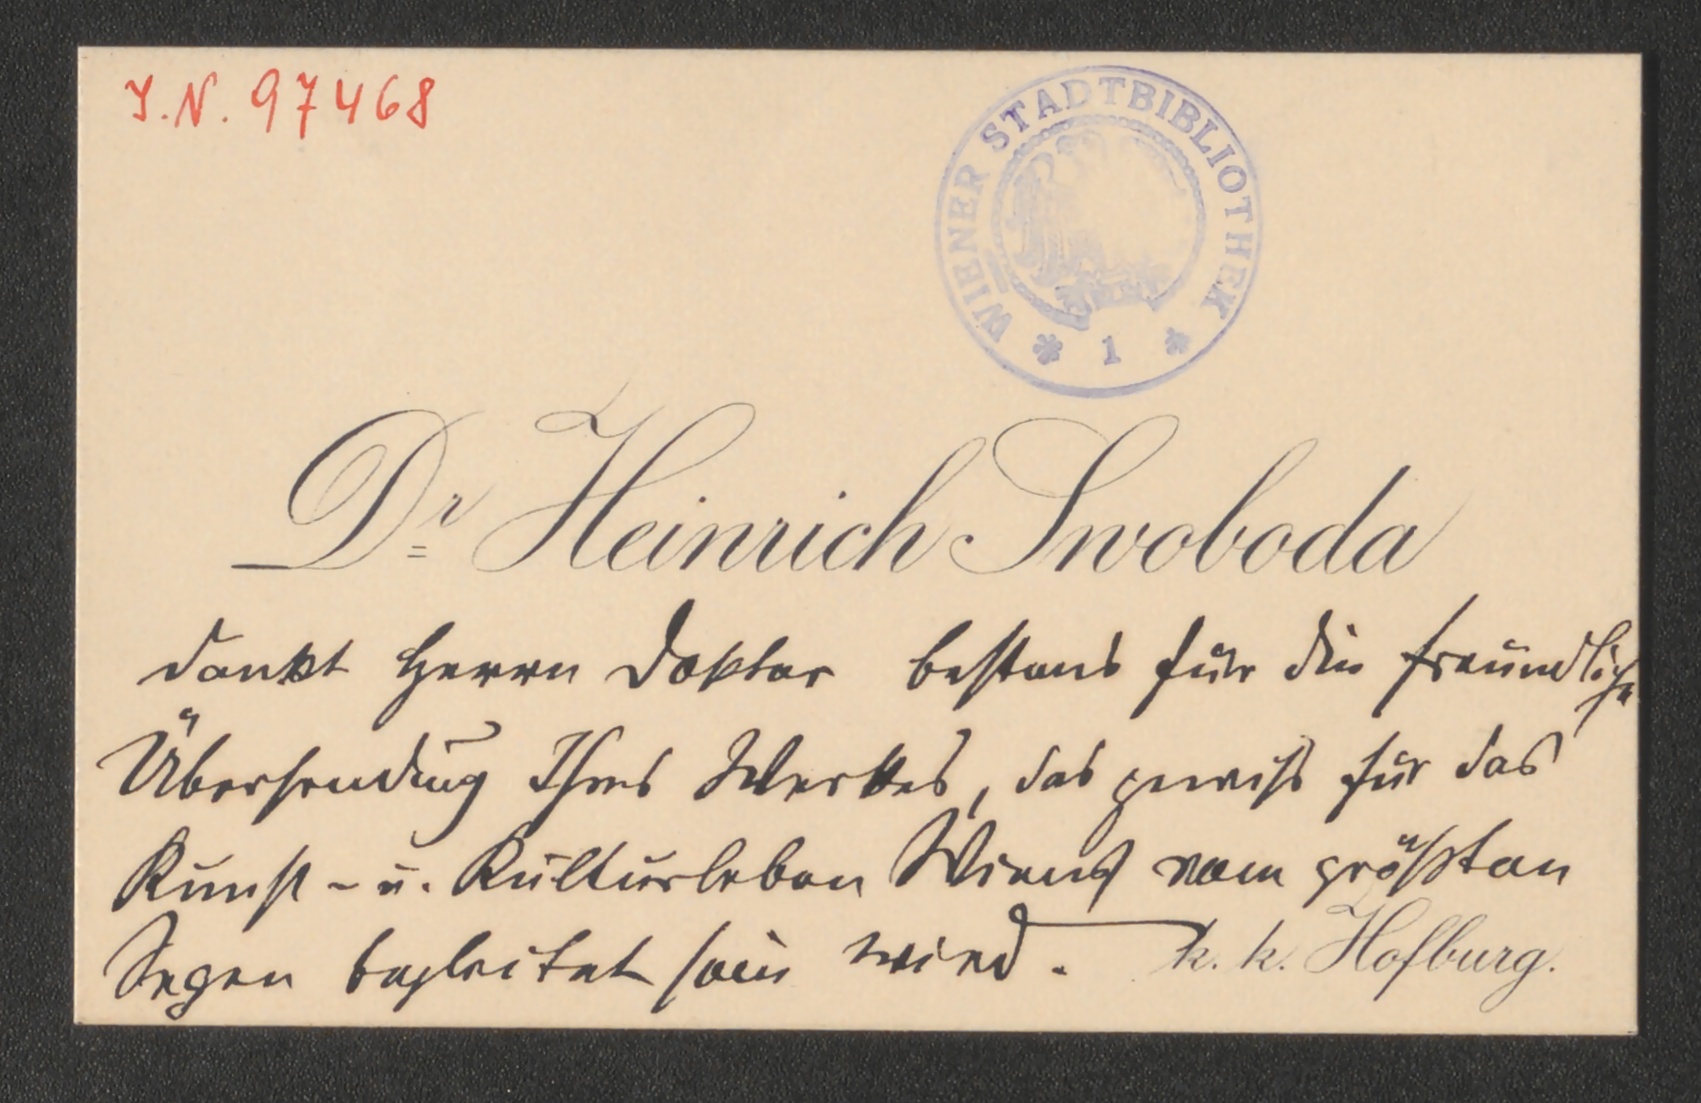 J.N. 97468
WIENER STADTBIBLIOTHEK
* 1 *
Dr Heinrich Swoboda
dankt Herrn Doktor bestens für die freundliche
Übersendung Ihres Werkes, das gewiß für das
Kunst- u. Kulturleben Wiens vom größten
Segen begleitet sein wird.
k. k. Hofburg.